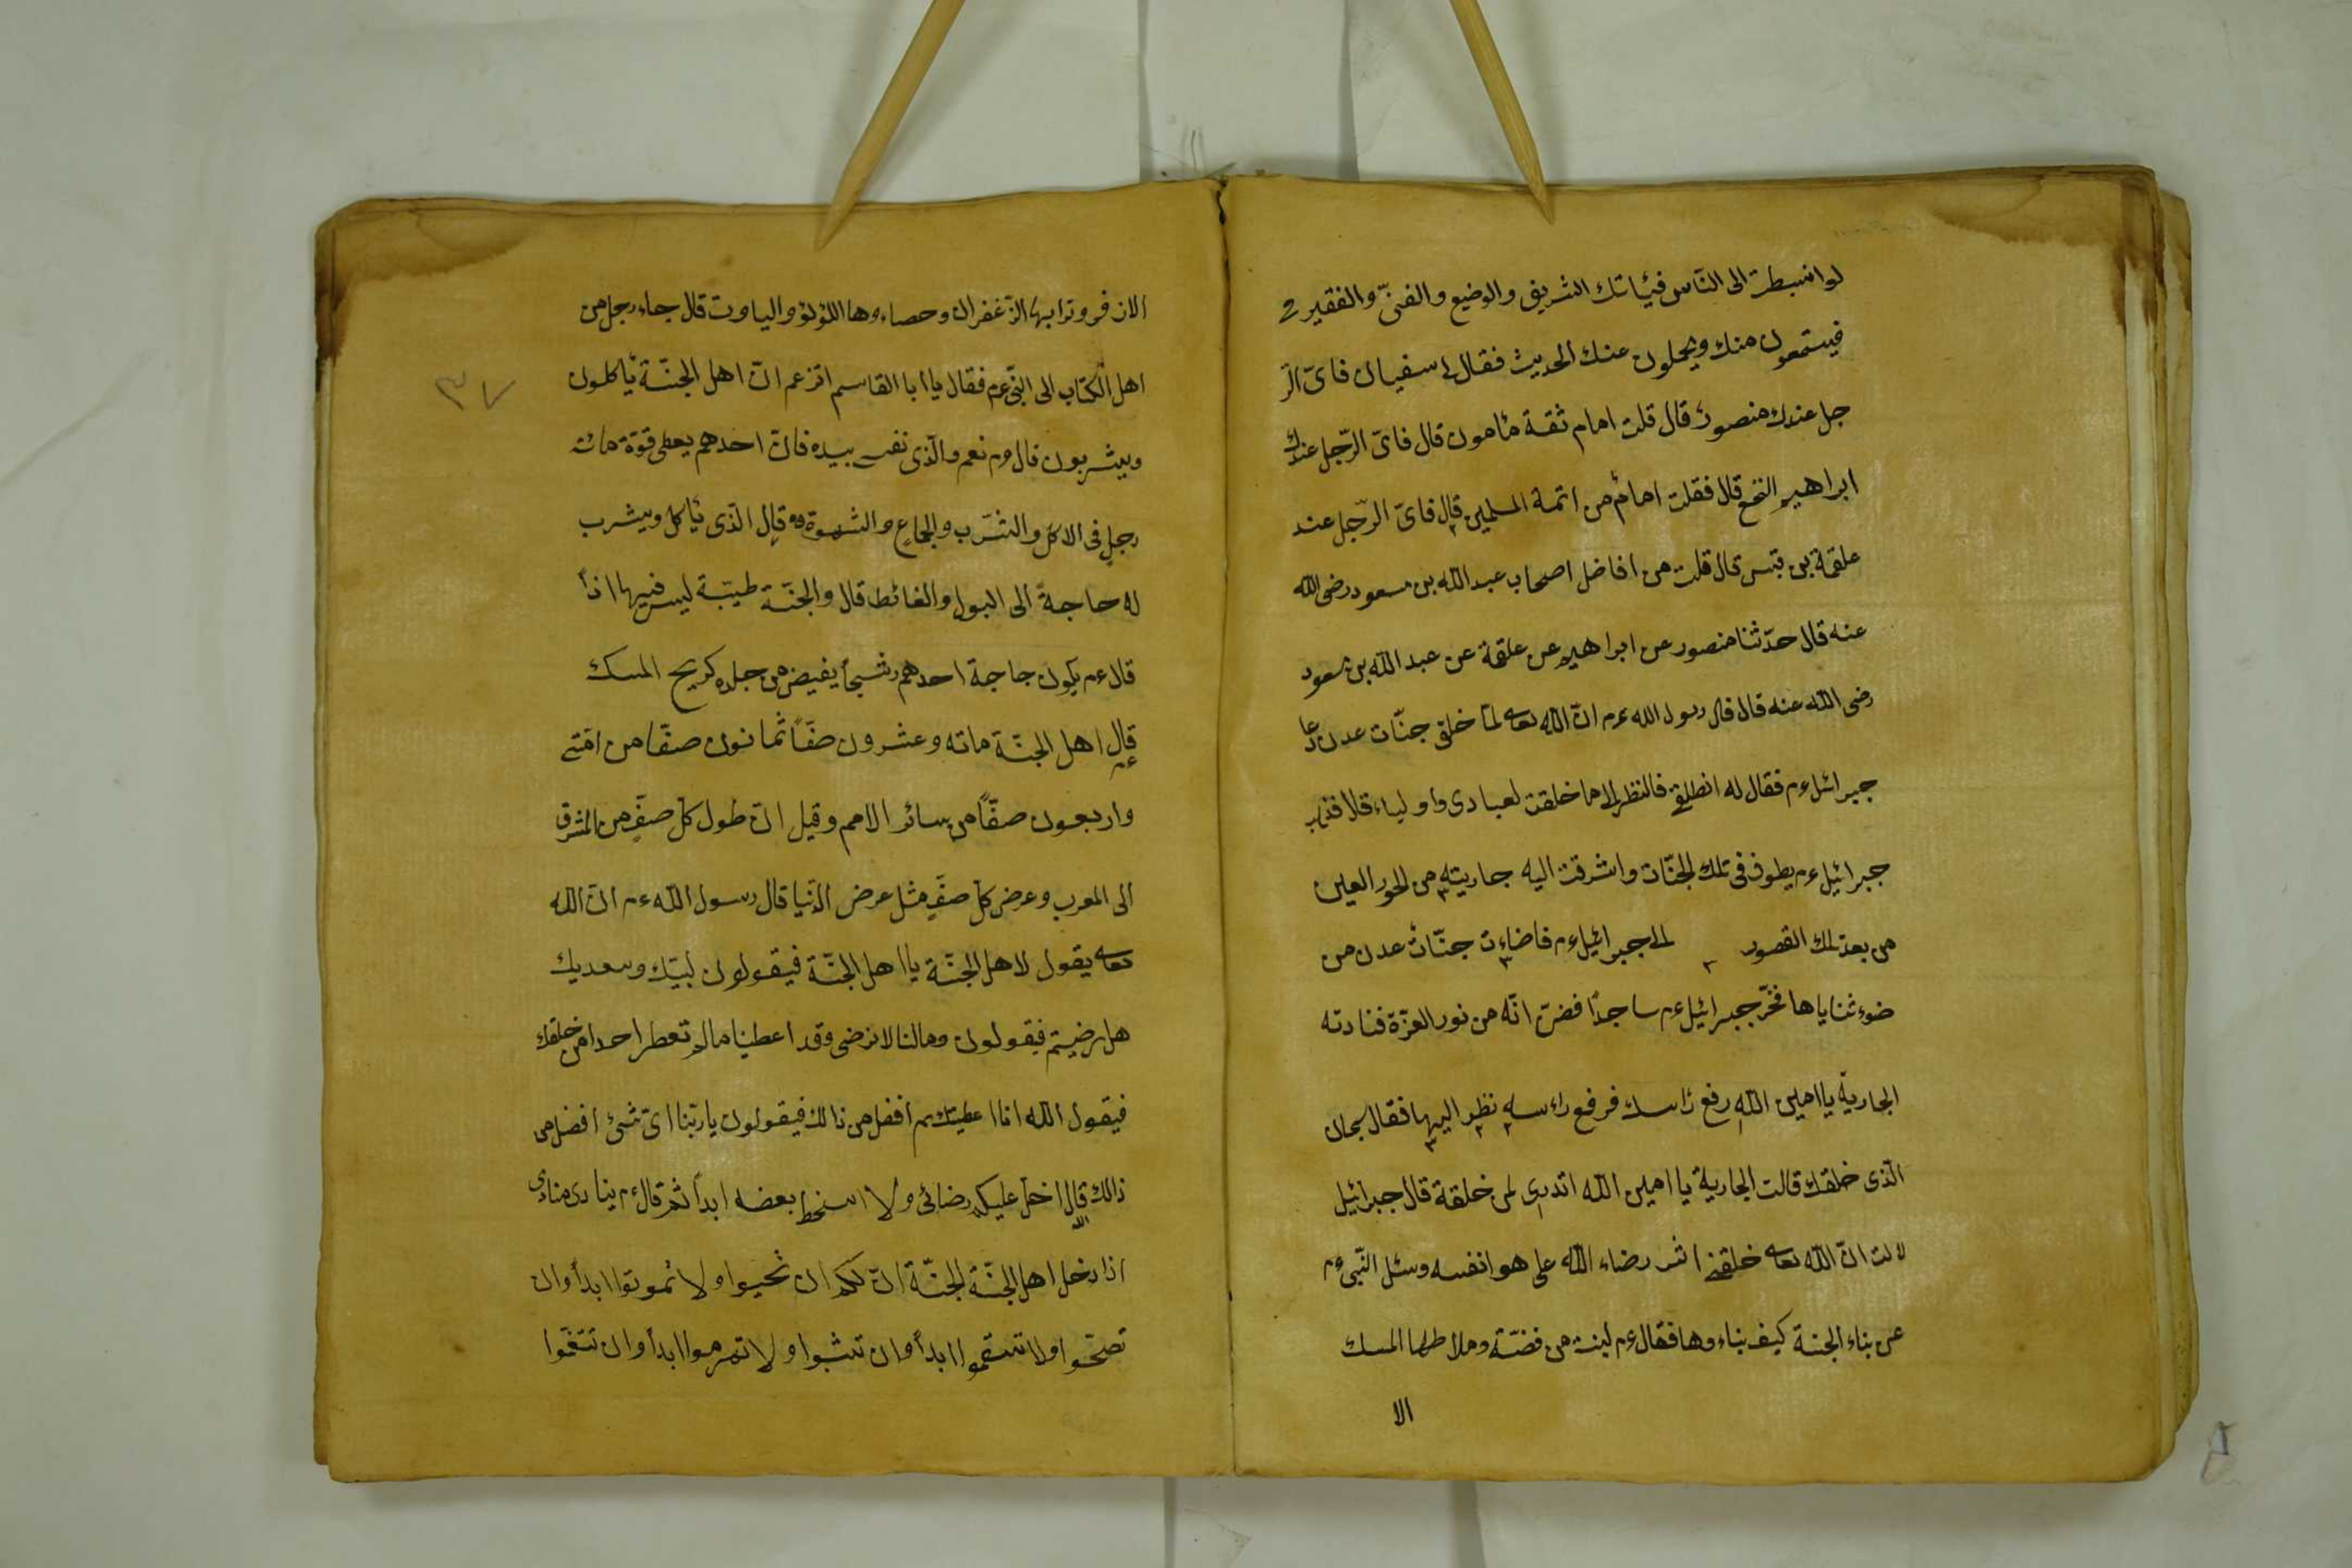 لوا نبسطت الى النّاس فيئاتك الشريف والوضيع والغنىّ والفقير
فيستمعون منك ويحلون عنك الحديث فقال لى سفيان فاىّ الر
جل عندك منصور قال قلت امام ثقة مأمون قال فاىّ الرّجل عندك
ابراهيم النخع قال فقلت امام من ائمة المسلمين قال فاىّ الرّجل عند
علقمة بن قيس قال قلت من افاضل اصحاب عبد الله بن مسعود رضى الله
عنه قال حدّثنا منصور عن ابراهيم عن علقمة عن عبد الله بن مسعود
رضى الله عنه قال قال رسول الله عم انّ الله تعالى لمّا خلق جنّات عدن دعا
جبرائل عم فقال له انطلق فالنظر الا ما خلقت لعبادى واولياء
جبرائيل عم يطوف فى تلك الجنّات واشرقت اليه جاريته من الحور العين
من بعد تلك القصور جبرائيل عم فاضاءت جنّات عدن من
ضوء ثناياها فخرّ جبرائيل عم ساجدًا فضنّ انّه من نور العزّة فنادته
الجارية يا امين الله رفع رأسك فرفع رأسه نظر اليها فقال سبحان
الّذى خلقك قالت الجارية يا امين الله اتدرى لمن خلقة قال جبرائيل
لا لت انّ الله تعالى خلقنى اثر رضاء الله على هوا نفسه وسئل النّبى عم
عن بناء الجنة كيف بناءوها فقال عم لبنة من فضّة وملاطها المسك
الا
الاذفر وترابها الزّعفران وحصاءوها اللؤلؤ والياوت قال جاء رجل من
اهل الكتاب الى النّبى عم فقال يا ابا القاسم اتزعم انّ اهل الجنّة يأكلون
٣٧
ويشربون قال عم نعم والّذى نفسى بيده فانّ احدهم يعطى قوّة مائة
رجل فى الاكل والشّرب والجماع والشهوة قال الّذى يأكل ويشرب
له حاجة الى البول والغائط قال والجنّة طيّبة ليس فيها اذاً
قال عم يكون حاجة احدهم رشحاً يفيض من جلده كريح المسك
قال عم اهل الجنّة مائه وعشرون صفّاً ثمانون صفّا من امّتى
واربعون صفّاً من سائر الامم وقيل انّ طول كلّ صفٍّ من المشرق
الى المغرب وعرض كلّ صفٍّ مثل عرض الدّنيا قال رسول الله عم انّ الله
تعالى يقول لاهل الجنّة يا اهل الجنّة فيقولون لبيّك وسعديك
هل رضيتم فيقولون ومالنا لا نرضى وقد اعطينا مالم تعطر احدا من خلقك
فيقول الله انا اعطيتكم افضل من ذالك فيقولون يا ربّنا اىّ شئ افضل من
ذالك قال الله اخلّ عليكم رضائى ولا اسخط بعضه ابداً ثم قال عم ينادى منادى
اذا دخل اهل الجنّة الجنّة انّ لكم ان تحيوا ولا تموتوا ابداً وان
تصحّوا ولا تسقموا ابداً وان تشبوا ولا تهرموا ابداً وان تتنعّموا